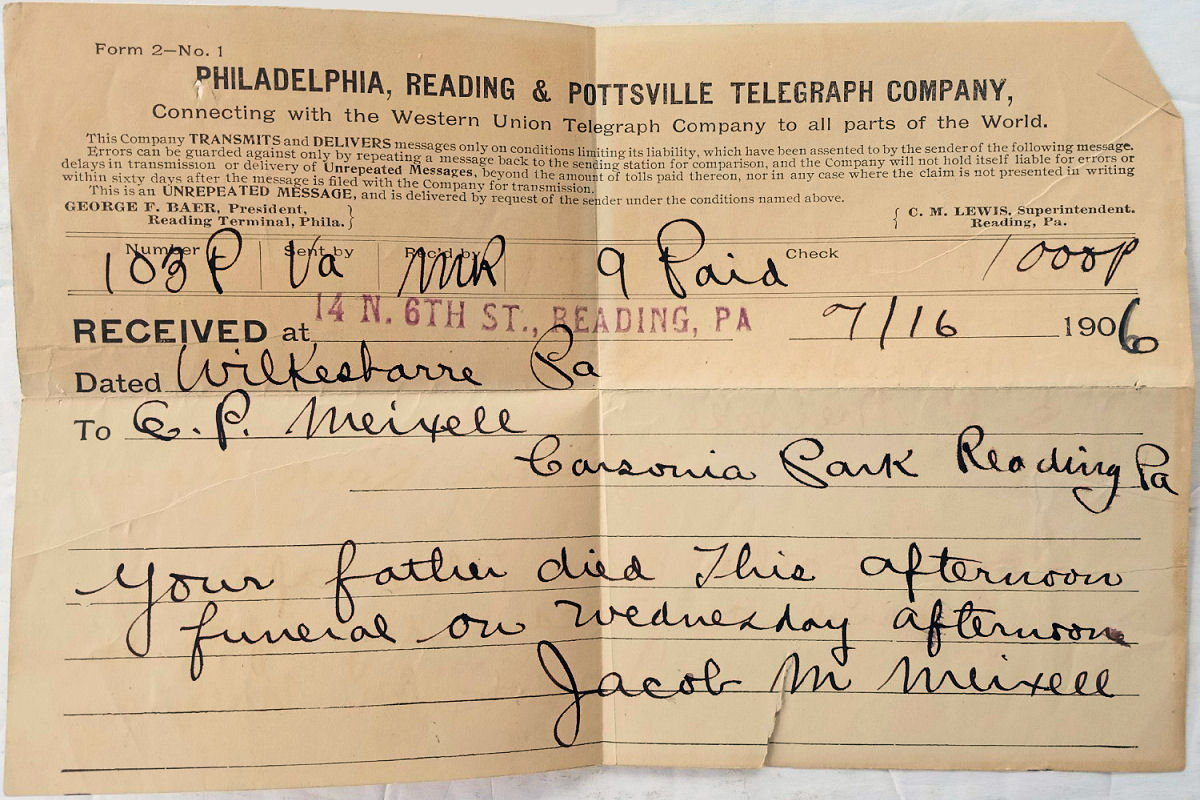 Form 2—No. 1
PHILADELPHIA, READING & POTTSVILLE TELEGRAPH COMPANY,
Connecting with the Western Union Telegraph Company to all parts of the World.
This Company TRANSMITS and DELIVERS messages only on conditions limiting its liability, which have been assented to by the sender of the following message.
Errors can be guarded against only by repeating a message back to the sending station for comparison, and the Company will not hold itself liable for errors or
delays in transmission or delivery of Unrepeated Messages, beyond the amount of tolls paid thereon, nor in any case where the claim is not presented in writing
within sixty days after the message is filed with the Company for transmission.
This is an UNREPEATED MESSAGE, and is delivered by request of the sender under the conditions named above.
GEORGE F. BAER, President, C. M. LEWIS, Superintendent.
Reading Terminal, Phila. Reading, Pa.
Number Sent by Rec'd by Check
103 P Va MR 9 Paid 1000P
14 N. 6TH ST., READING, PA
RECEIVED at 7/16 1906
Dated Wilkesbarre Pa
To E. P. Meixell
Carsonia Park Reading Pa
Your father died This afternoon
funeral on wednesday afternoon
Jacob M Meixell